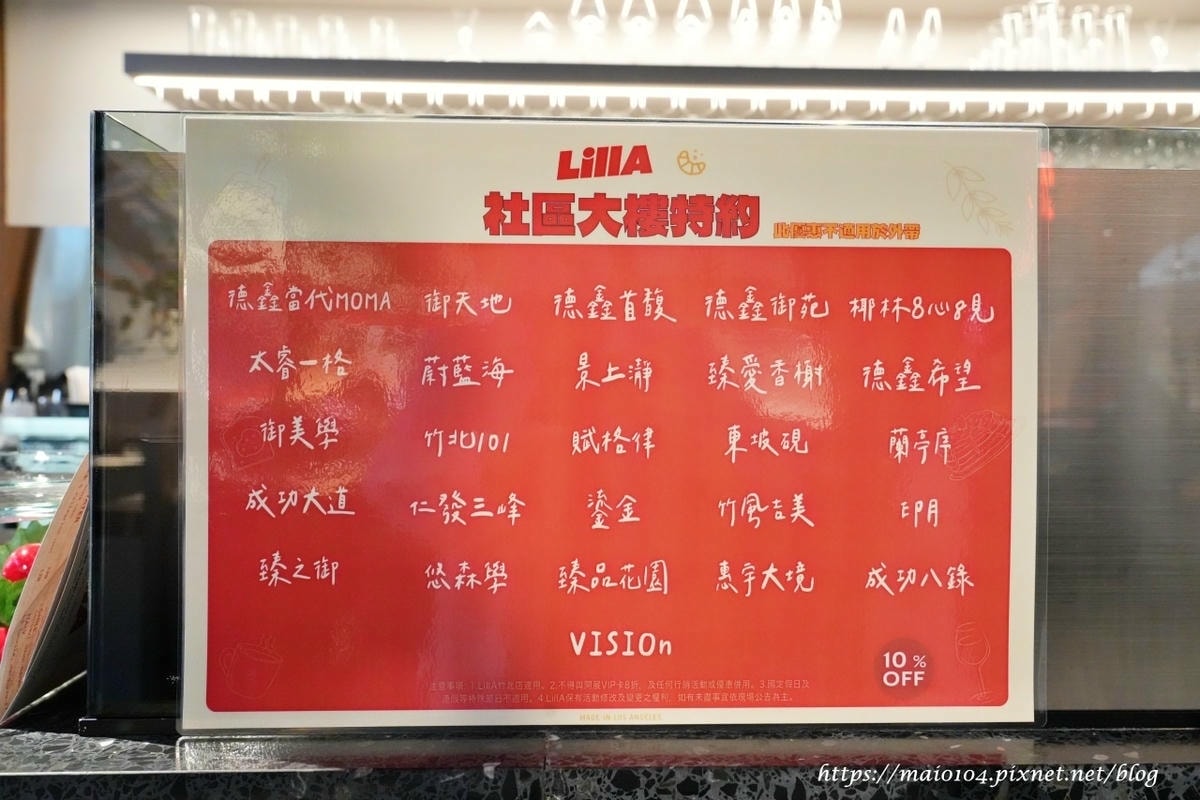 LillA
社區大樓特約 此優惠不適用於外帶
德鑫當代MOMA 御天地 德鑫首馥 德鑫御苑 椰林8心8見
太睿一格 蔚藍海 景上瀞 臻愛香榭 德鑫希望
御美學 竹北101 賦格律 東坡硯 蘭亭序
成功大道 仁發三峰 鎏金 竹風吉美 印月
臻之御 悠森學 臻品花園 惠宇大境 成功八錄
VISIOn
10 %
OFF
注意事項: 1.LillA竹北店適用。2.不得與開展VIP卡8折, 及任何行銷活動或優惠併用。3.國定假日及
連假等特殊節日不適用。4.LillA保有活動修改及變更之權利, 如有未盡事宜依現場公告為主。
MADE IN LOS ANGELES
https://maio104.pixnet.net/blog